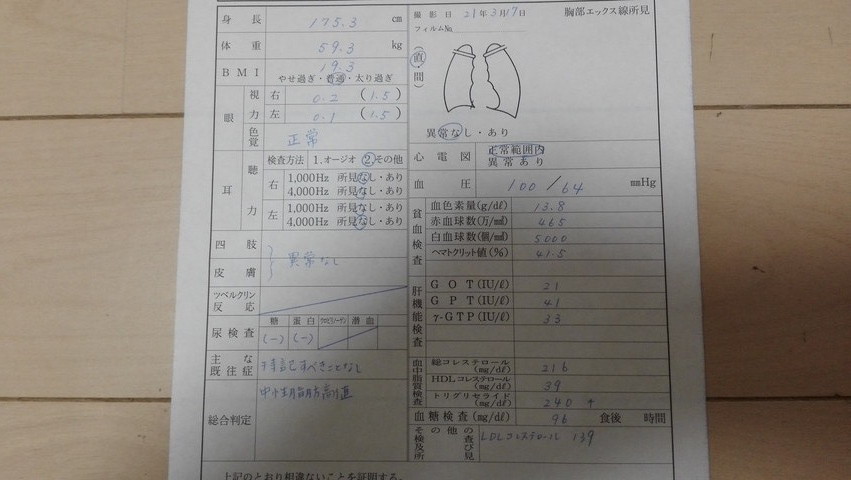 身長 175.3 cm
体重 59.3 kg
BMI 19.3
やせ過ぎ・普通・太り過ぎ
眼
視力 右 0.2 (1.5)
左 0.1 (1.5)
色覚 正常
耳
聴力 検査方法 1.オージオ 2.その他
右 1,000Hz 所見なし・あり
4,000Hz 所見なし・あり
左 1,000Hz 所見なし・あり
4,000Hz 所見なし・あり
四肢
皮膚
異常なし
ツベルクリン反応
尿検査 糖 蛋白 ウロビリノーゲン 潜血
(-) (-)
主な既往症 特記すべきことなし
総合判定 中性脂肪高値
上記のとおり相違ないことを証明する。
撮影日 21年3月17日 胸部エックス線所見
フィルムNo.
(直・間)
異常なし・あり
心電図 正常範囲内
異常あり
血圧 100/64 mmHg
貧血検査
血色素量(g/dℓ) 13.8
赤血球数(万/㎣) 465
白血球数(個/㎣) 5000
ヘマトクリット値(%) 41.5
肝機能検査
GOT(IU/ℓ) 21
GPT(IU/ℓ) 41
γ-GTP(IU/ℓ) 33
血中脂質検査
総コレステロール(mg/dℓ) 216
HDLコレステロール(mg/dℓ) 39
トリグリセライド(mg/dℓ) 240 ↑
血糖検査(mg/dℓ) 96 食後 時間
その他の検査及び所見 LDLコレステロール 139